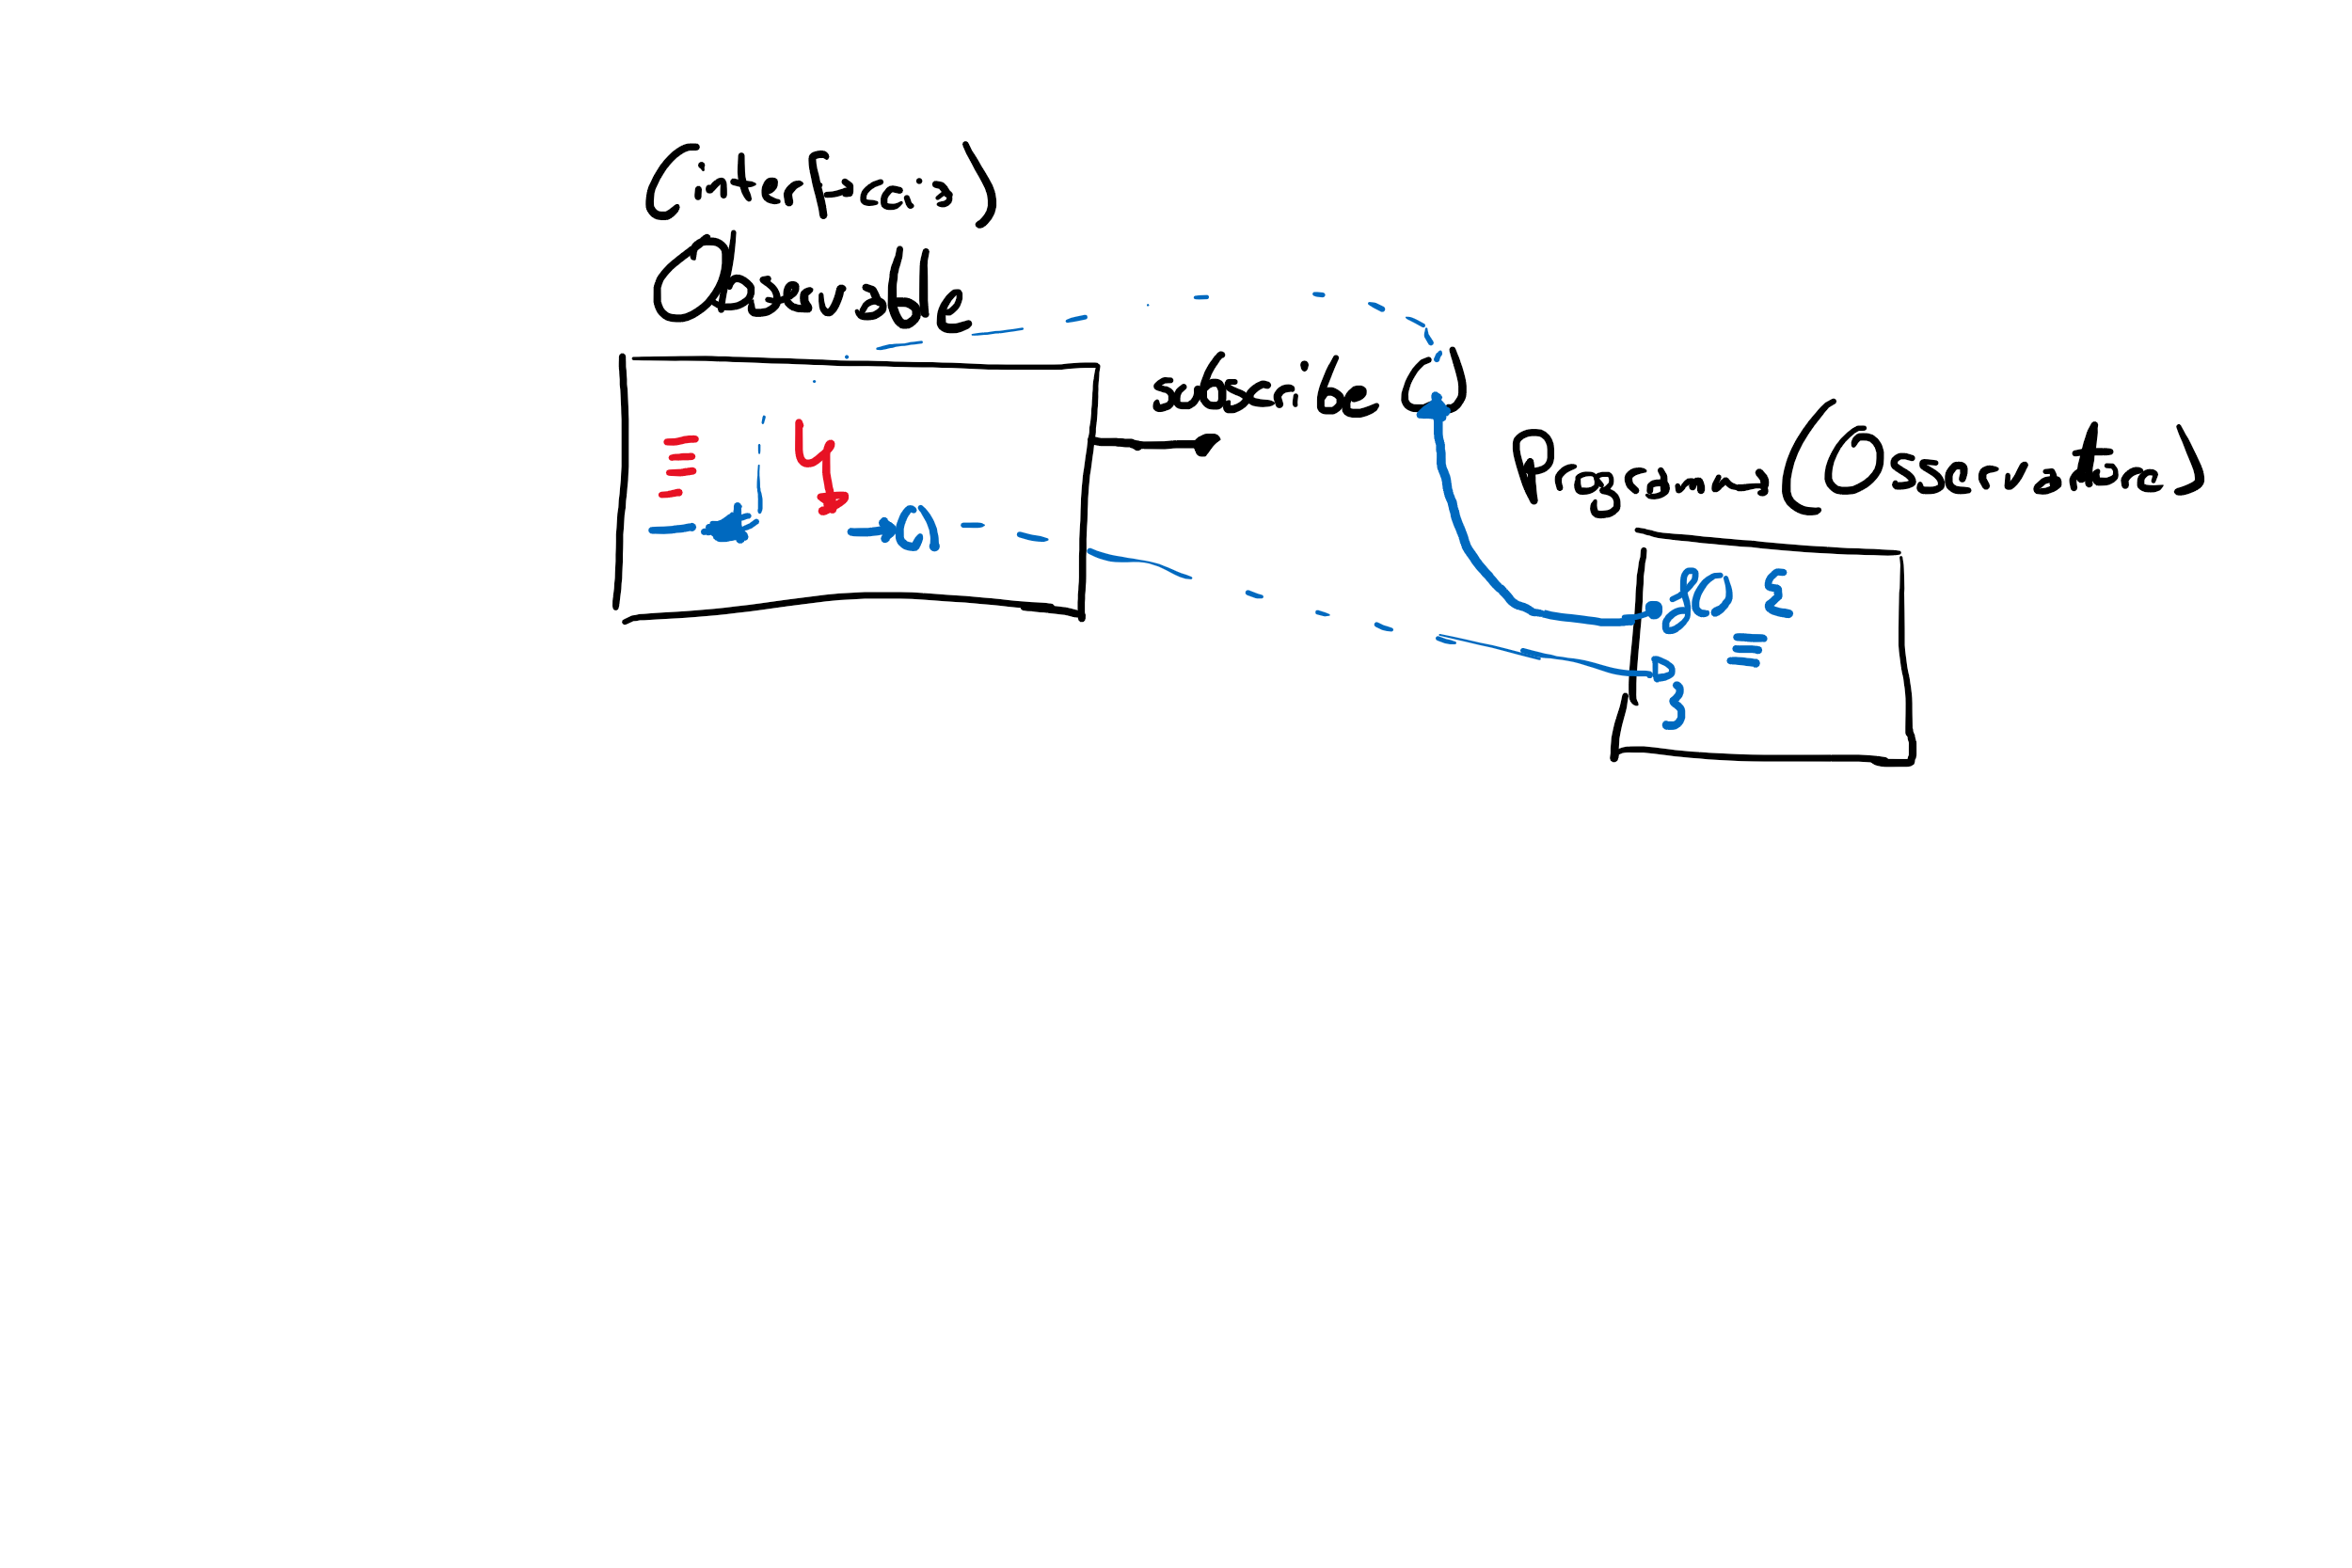 (interfaccia)
Observable
subscribe ()
Programma (Osservatore)
() {
≡
}